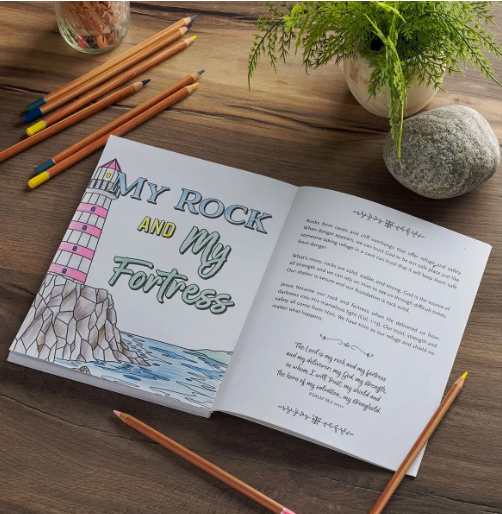 MY ROCK
AND My
Fortress
Rocks form caves and cliff overhangs that offer refuge and safety.
When danger appears, we can trust God to be our safe place just like
someone taking refuge in a cave can trust that it will keep them safe
from danger.
What's more, rocks are solid, stable, and strong. God is the source of
all strength and we can rely on Him to see us through difficult times.
Our shelter is secure and our foundation is rock solid.
Jesus became our rock and fortress when He delivered us from
darkness into His marvelous light (Col. 1:13). Our trust, strength and
safety all come from Him. We have Him as our refuge and shield no
matter what happens.
The Lord is my rock and my fortress
and my deliverer; my God, my strength,
in whom I will trust; my shield and
the horn of my salvation, my stronghold.
PSALM 18:2